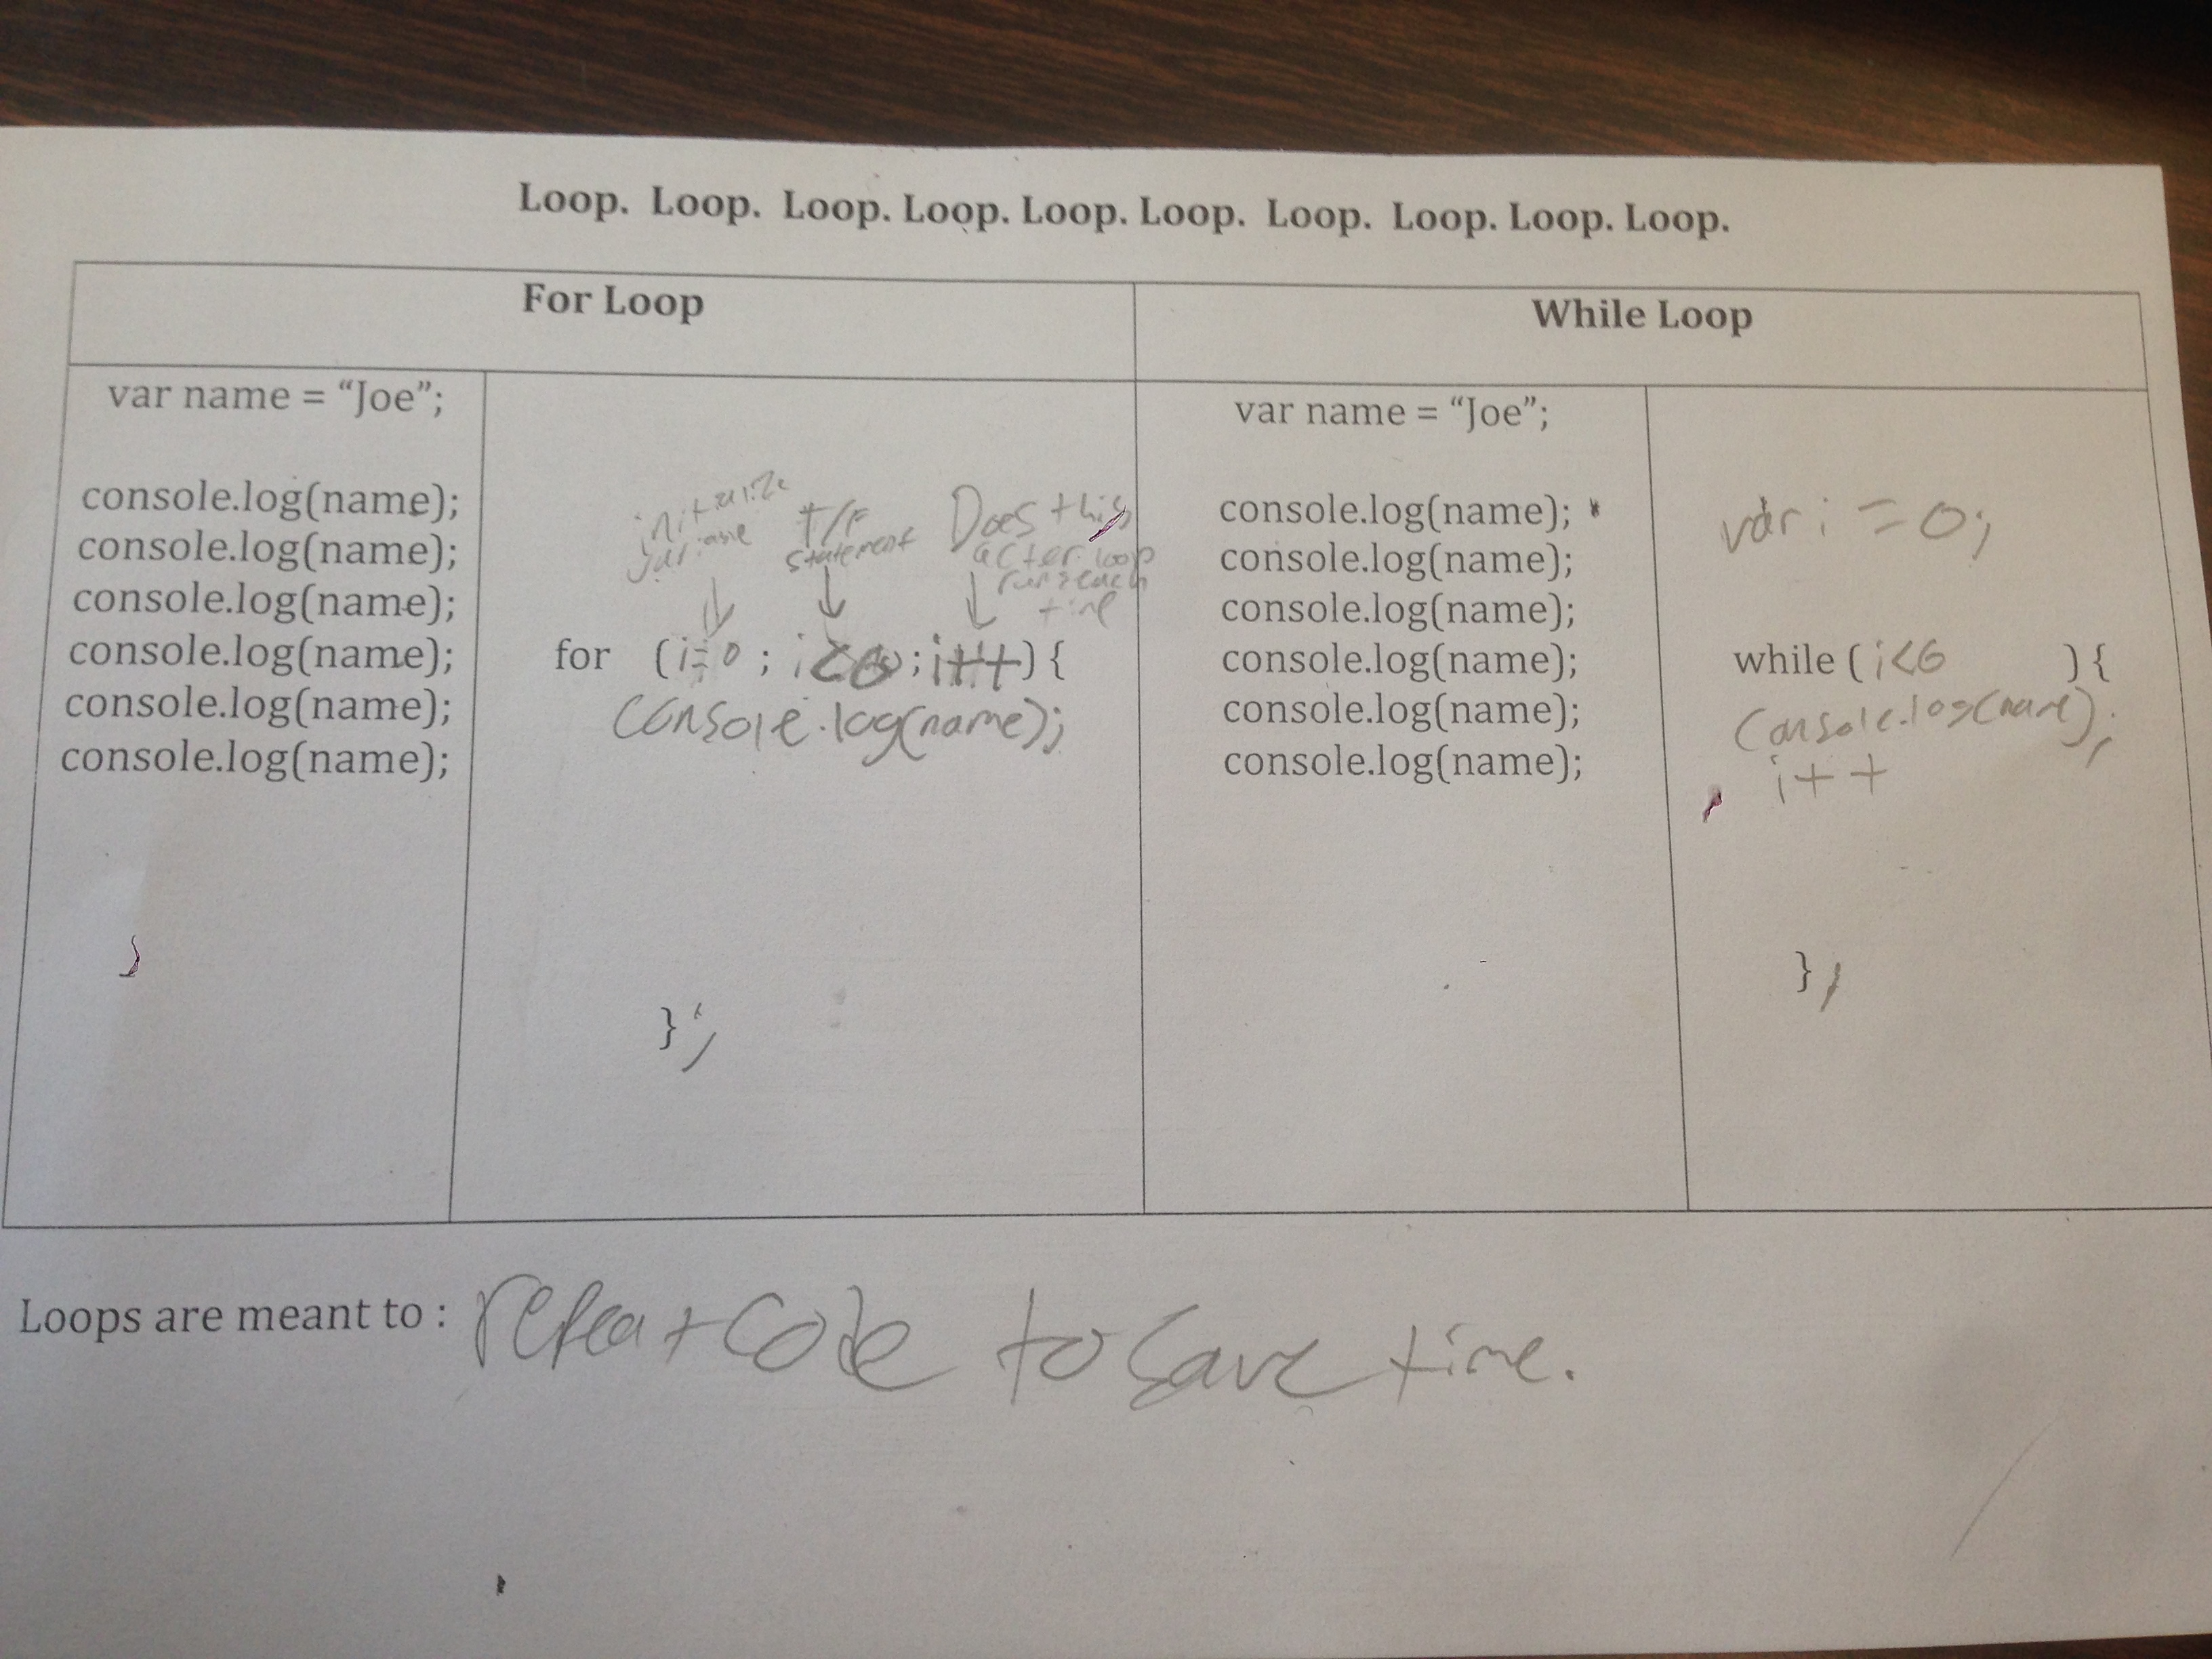 Loop. Loop. Loop. Loop. Loop. Loop. Loop. Loop. Loop. Loop.
For Loop
var name = “Joe”;
console.log(name);
console.log(name);
console.log(name);
console.log(name);
console.log(name);
console.log(name);
initialize
variable
T/F
statement
Does this
after loop
runs each
time
for (i=0 ; i<6 ; i++) {
console.log(name);
};
While Loop
var name = “Joe”;
console.log(name);
console.log(name);
console.log(name);
console.log(name);
console.log(name);
console.log(name);
var i = 0;
while ( i<6 ) {
console.log(name);
i++
};
Loops are meant to : repeat code to save time.